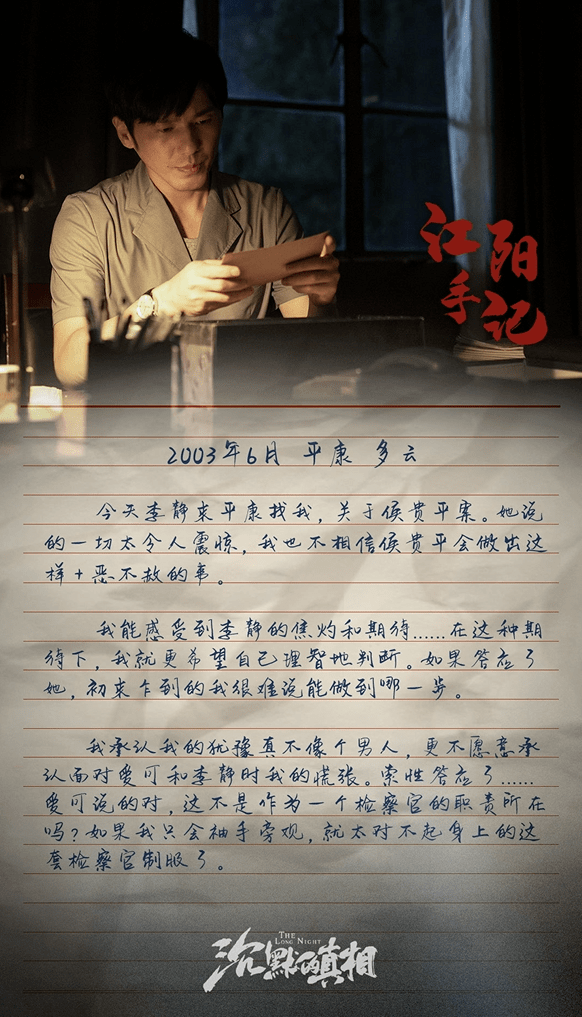 江阳
手记
2003年6月 平康 多云
今天李静来平康找我，关于侯贵平案。她说
的一切太令人震惊，我也不相信侯贵平会做出这
样十恶不赦的事。
我能感受到李静的焦灼和期待......在这种期
待下，我就更希望自己理智地判断。如果答应了
她，初来乍到的我很难说能做到哪一步。
我承认我的犹豫真不像个男人，更不愿意承
认面对爱可和李静时我的慌张。索性答应了......
爱可说的对，这不是作为一个检察官的职责所在
吗？如果我只会袖手旁观，就太对不起身上的这
套检察官制服了。
THE
LONG NIGHT
沉默的真相